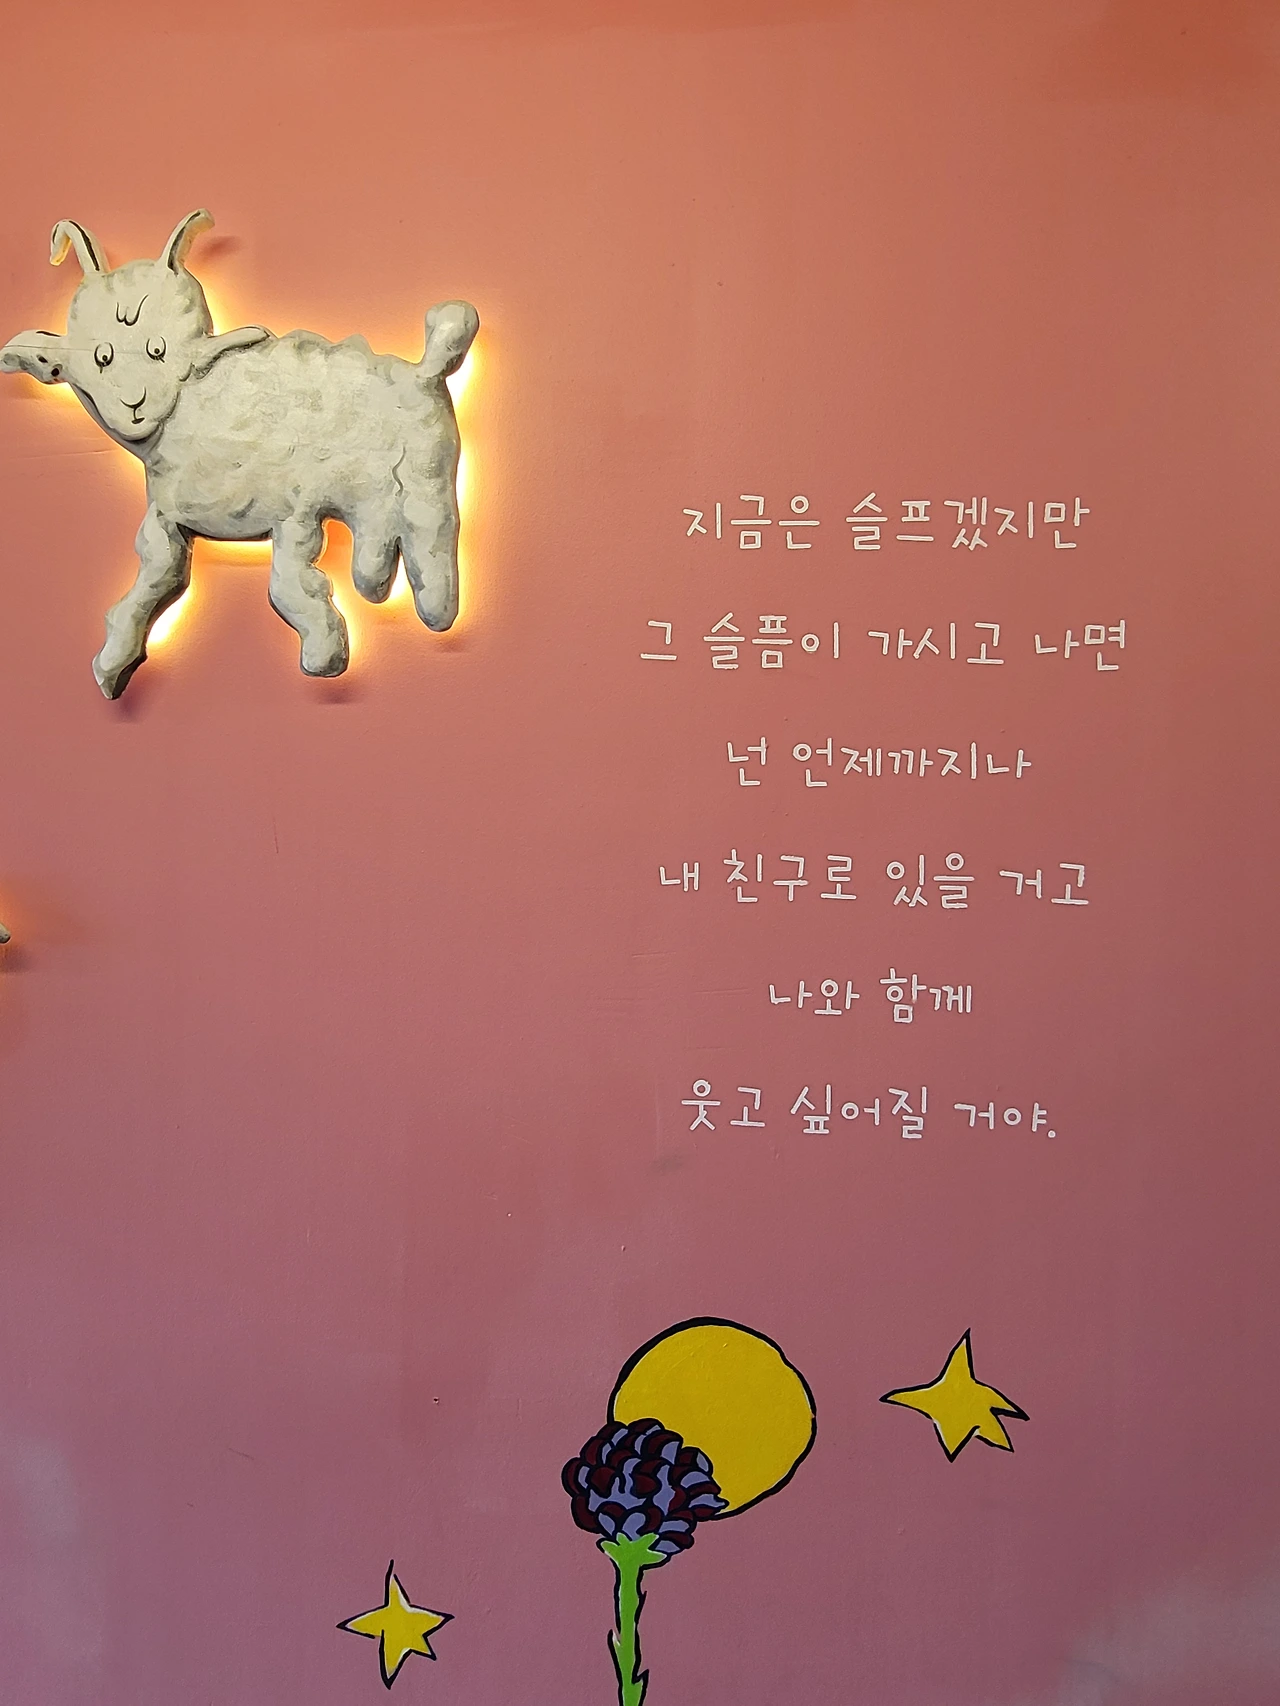 지금은 슬프겠지만
그 슬픔이 가시고 나면
넌 언제까지나
내 친구로 있을 거고
나와 함께
웃고 싶어질 거야.